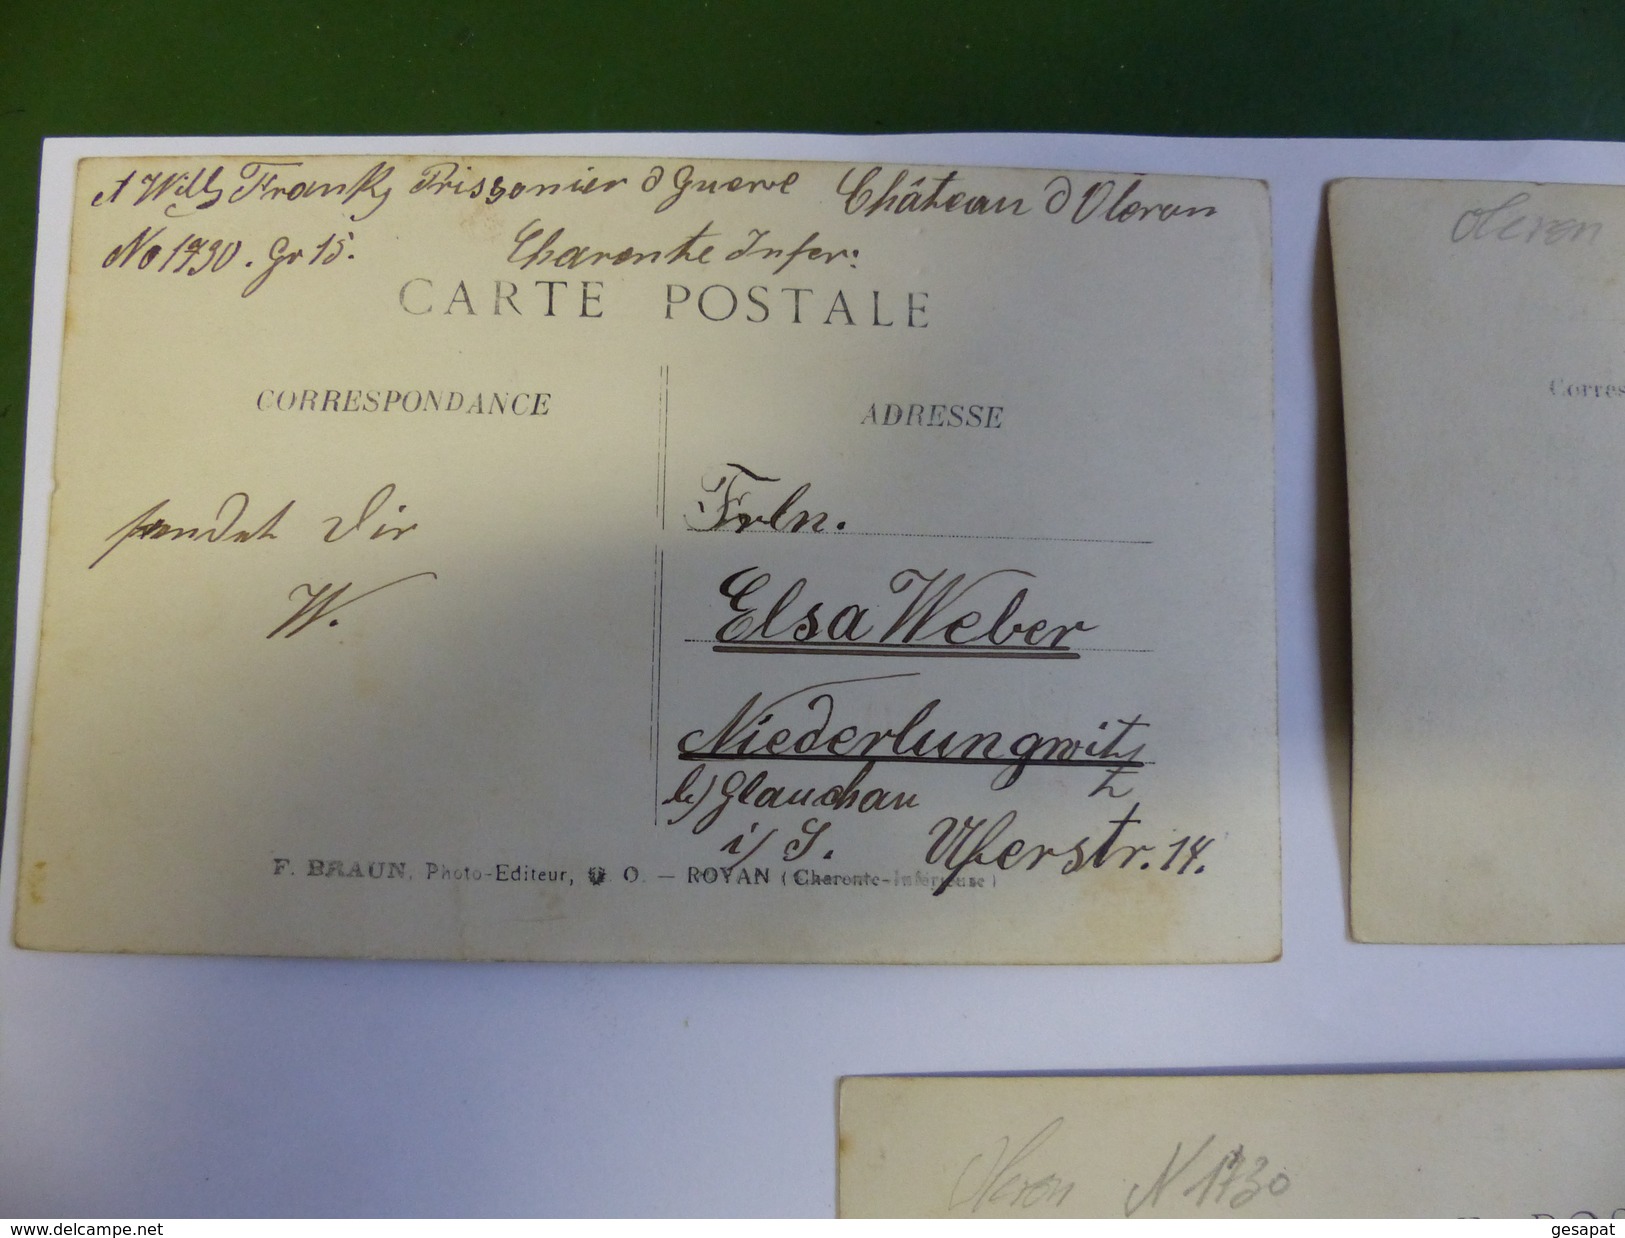 A Willy Franky Prissonier d Guerre Château d Oleron
No 1730. Gr 15. Charente Infer:
CARTE POSTALE
CORRESPONDANCE
ADRESSE
sendet Dir
W.
Frln.
Elsa Weber
Niederlungwitz
b/ Glauchau
i/ S. Uferstr. 14.
F. BRAUN, Photo-Editeur, O. — ROYAN (Charente-Inférieure)
Oleron
Corres
Oleron N 1730
www.delcampe.net
gesapat